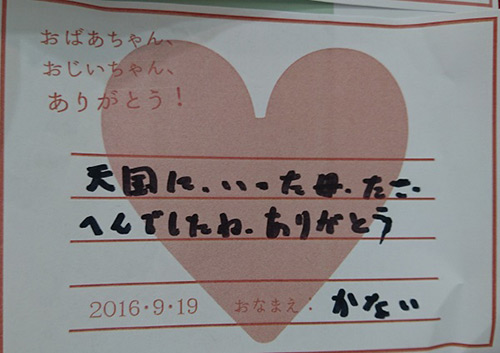 おばあちゃん、
おじいちゃん、
ありがとう!
天国に、いった母、たい
へんでしたね、ありがとう
2016・9・19 おなまえ: かない